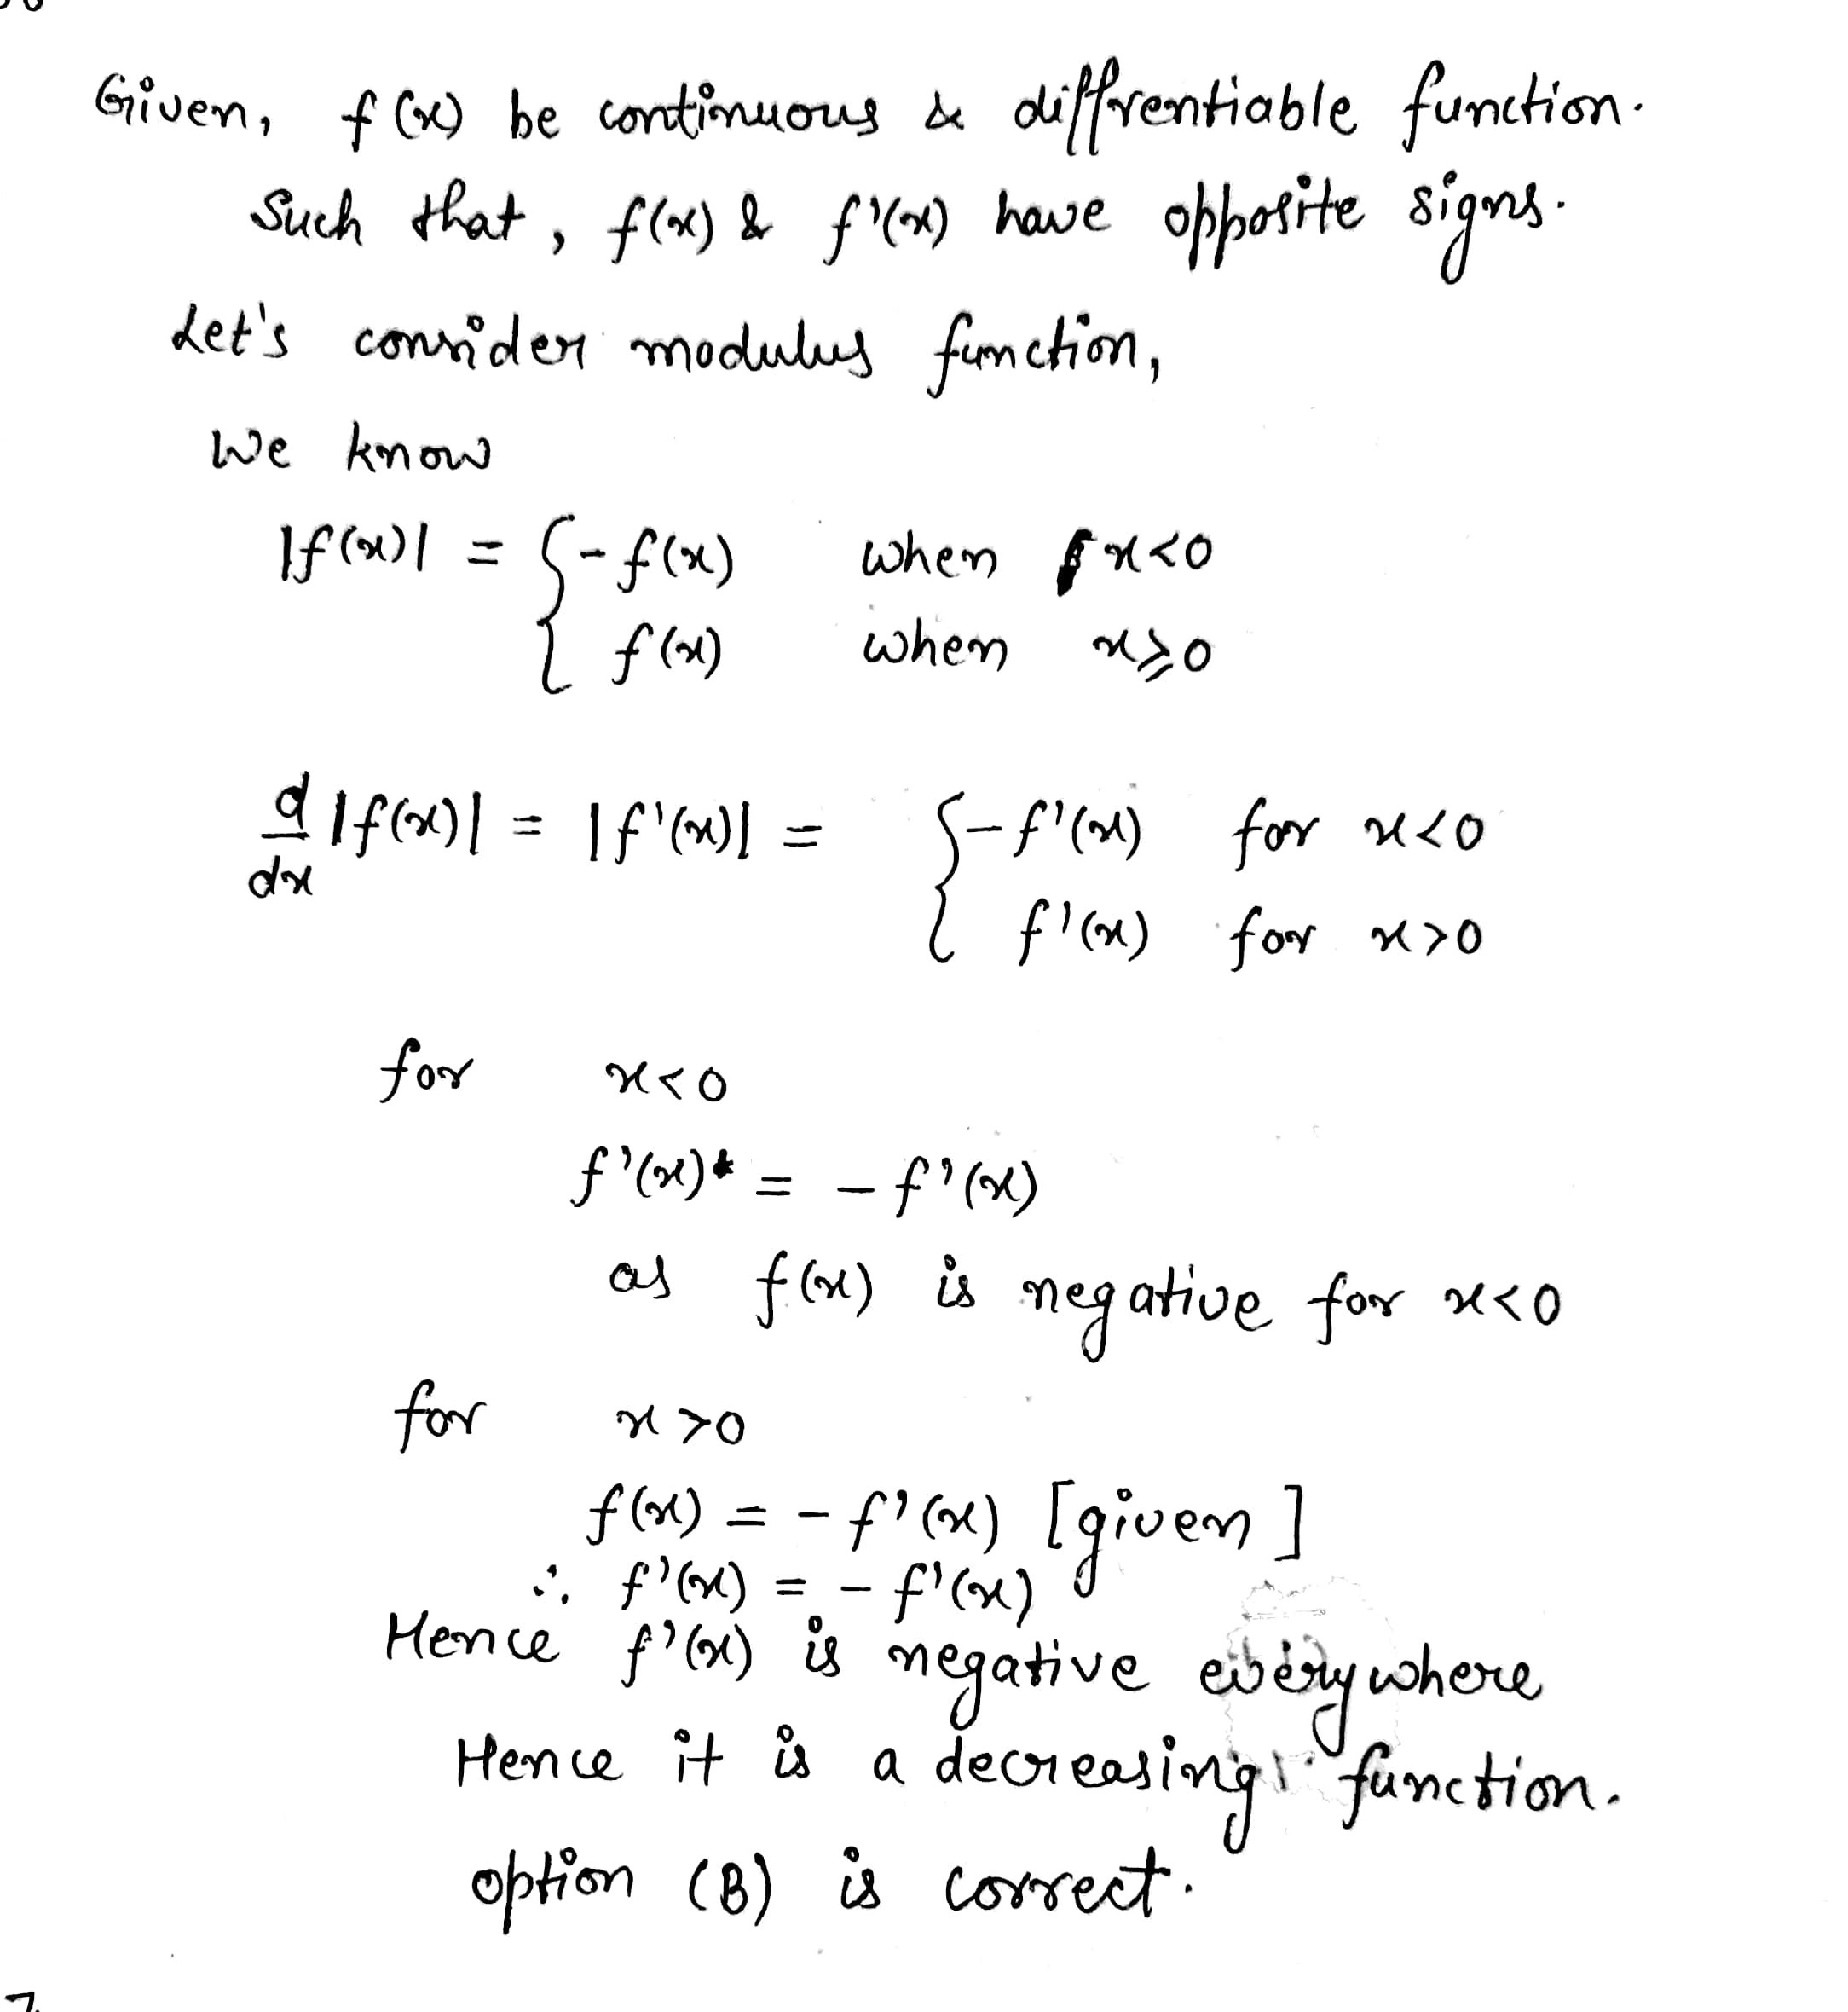 Given, f(x) be continuous & diffrentiable function.
Such that, f(x) & f'(x) have opposite signs.
Let's consider modulus function,
We know
|f(x)| = { -f(x) when x<0
f(x) when x⩾0
d/dx |f(x)| = |f'(x)| = { -f'(x) for x<0
f'(x) for x>0
for x<0
f'(x) = -f'(x)
as f(x) is negative for x<0
for x>0
f(x) = -f'(x) [given]
∴ f'(x) = -f'(x)
Hence f'(x) is negative everywhere
Hence it is a decreasing function.
option (B) is correct.